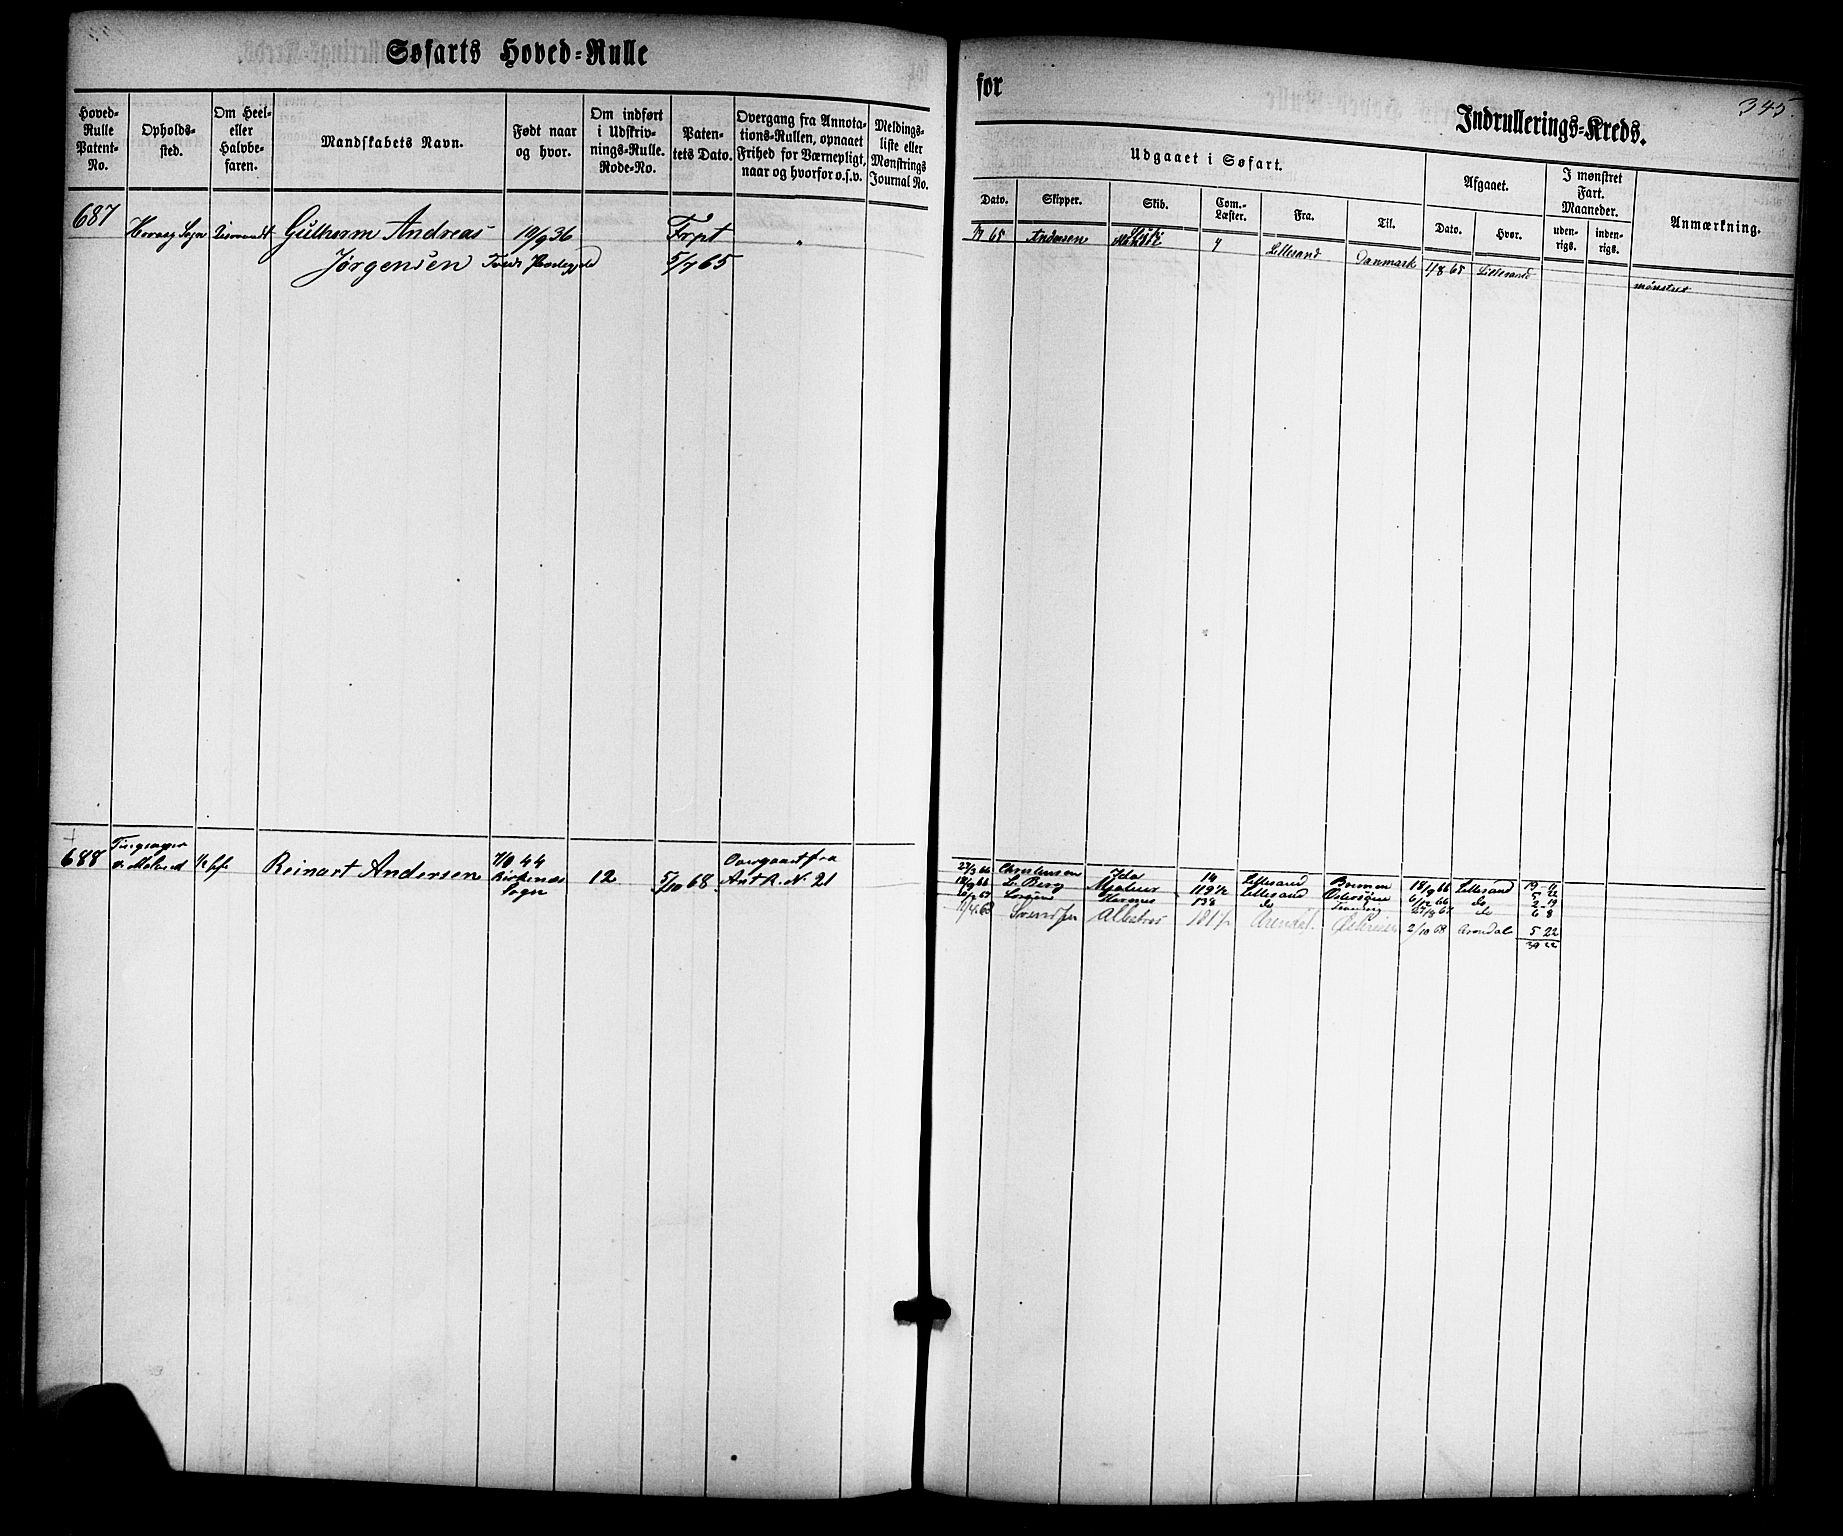 Søfarts Hoved=Rulle
for
Indrullerings=Kreds.
345.
Hoved-
Rulle
Patent-
No.
Opholds-
sted.
Om Heel-
eller
Halvbe-
faren.
Mandskabets Navn.
Født naar
og hvor.
Om indført
i Udskriv-
nings-Rulle.
Rode-No.
Paten-
tets Dato.
Overgang fra Annota-
tions-Rullen, opnaaet
Frihed for Værnepligt,
naar og hvorfor o.s.v.
Meldings-
liste eller
Mønstrings
Journal No.
Udgaaet i Søfart.
Afgaaet.
I mønstret
Fart.
Maaneder.
Anmærkning.
Dato.
Skipper.
Skib.
Com.-
Læster.
Fra.
Til.
Dato.
Hvor.
uden-
rigs.
inden-
rigs.
687
Sogn
Gulhorm Andreas
Jørgensen
19/9 36
Frpt
5/7 65
65 Andersen 7 Lillesand Danmark 1/8 65 Lillesand
mønstret
688
1/2 bef.
Reinart Andersen
7/9 44
Birkenæs
Sogn
12
5/10 68
Overgaaet fra
Ant R. N. 21
27/3 66 Christensen Ida 14 Lillesand Bremen 18/9 66 Lillesand 19-11
18/9 66 L. Berg 119 1/2 Lillesand Østersøen 6/12 66 do 5 22
138 do 27/8 67 do 2-19
6 8
11/4 68 Svendsen Albatros 181 1/2 Arendal Østersøen 2/10 68 Arendal 5 22
39 22